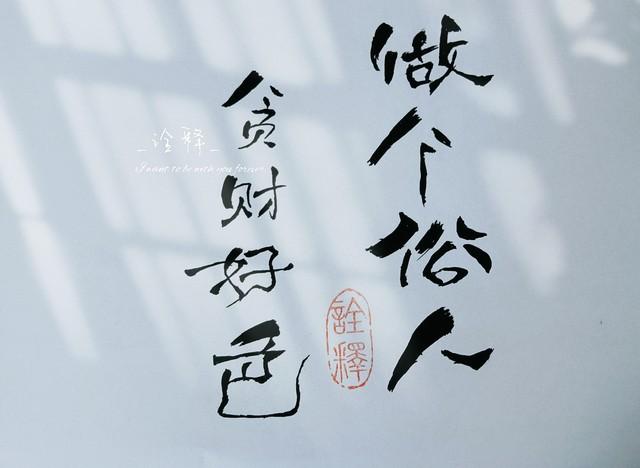 做个俗人
贪财好色
詮釋
_诠释_
I want to be with you forever